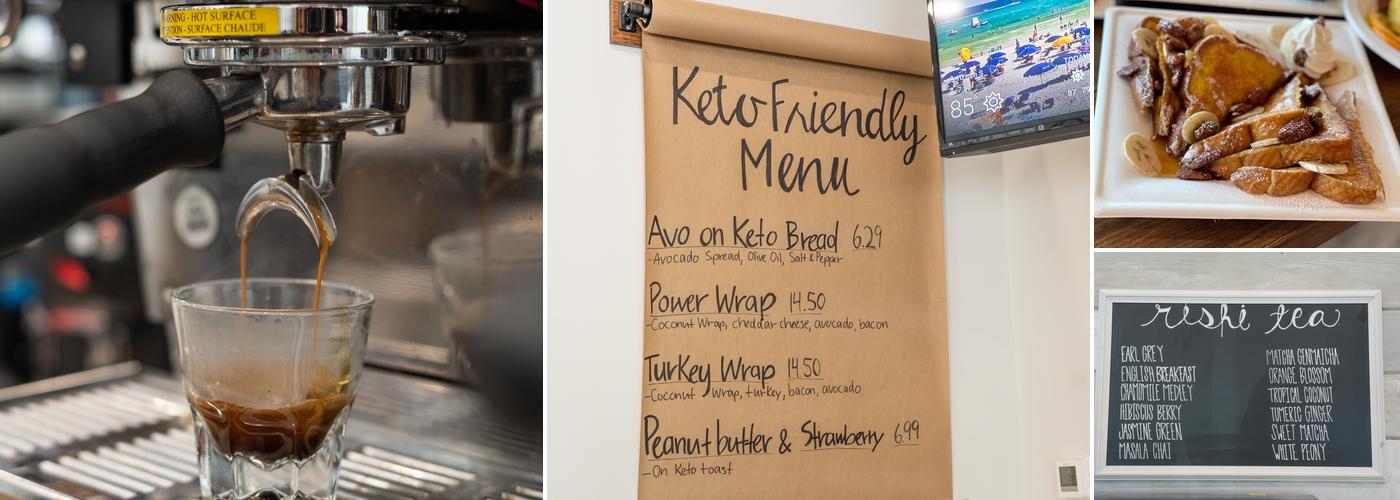 WARNING - HOT SURFACE
ATTENTION - SURFACE CHAUDE
Keto Friendly
Menu
Avo on Keto Bread 6.29
-Avocado Spread, Olive Oil, Salt & Pepper
Power Wrap 14.50
-Coconut Wrap, cheddar cheese, avocado, bacon
Turkey Wrap 14.50
-Coconut Wrap, turkey, bacon, avocado
Peanut butter & Strawberry 6.99
-On Keto toast
TODAY
85°
87 79
rishi tea
EARL GREY
ENGLISH BREAKFAST
CHAMOMILE MEDLEY
HIBISCUS BERRY
JASMINE GREEN
MASALA CHAI
MATCHA GENMAICHA
ORANGE BLOSSOM
TROPICAL COCONUT
TUMERIC GINGER
SWEET MATCHA
WHITE PEONY